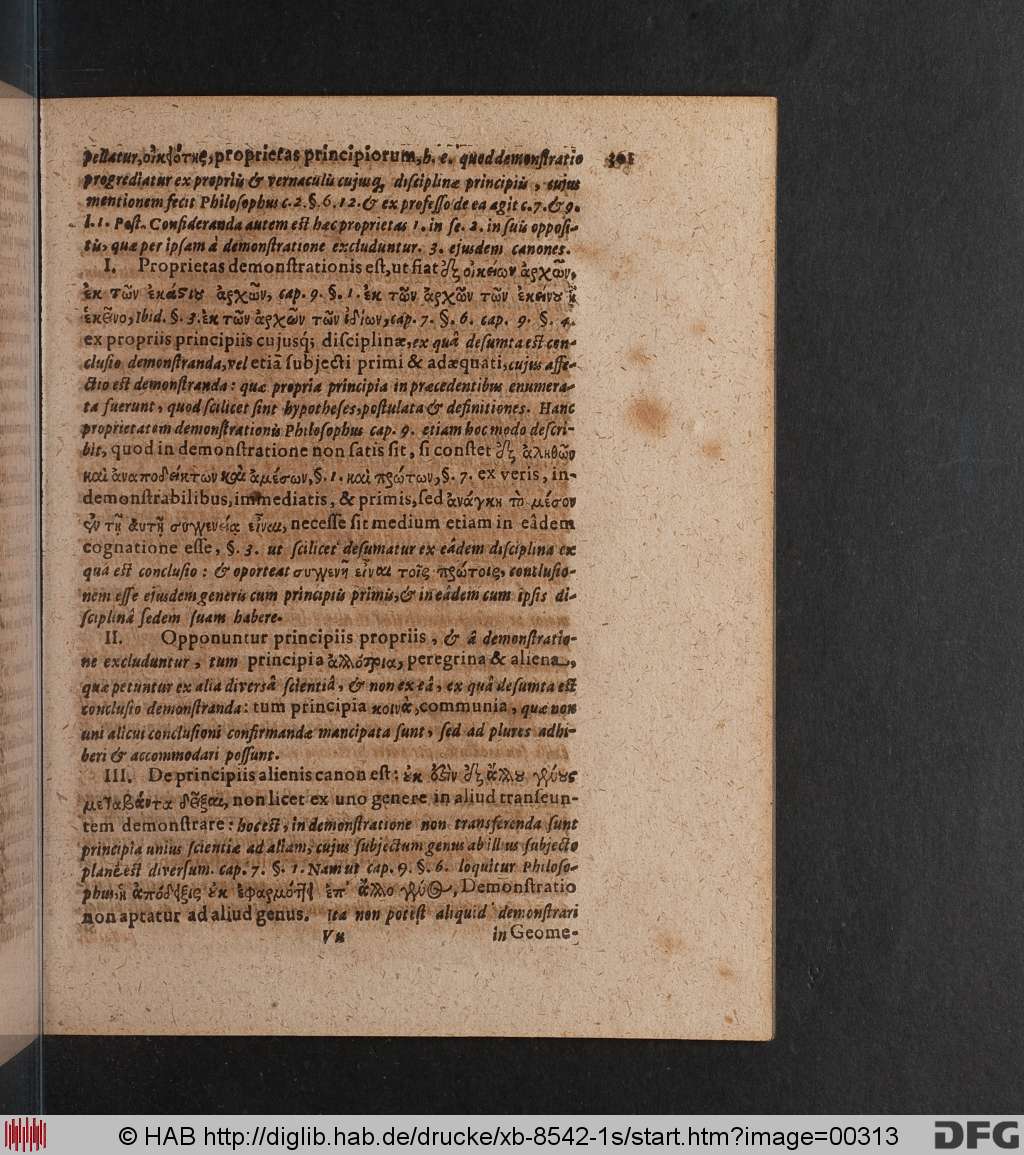 pellatur, οἰκειότης, proprietas principiorum, h. e. quod demonſtratio 361
progrediatur ex propriis & vernaculis cujusq; diſciplinæ principiis, cujus
mentionem fecit Philoſophus c. 2. §. 6. 12. & ex profeſſo de ea agit c. 7. & 9.
l. 1. Poſt. Conſideranda autem eſt hæc proprietas 1. in ſe. 2. in ſuis oppoſi-
tis, quæ per ipſam à demonſtratione excluduntur. 3. ejusdem canones.
I. Proprietas demonſtrationis eſt, ut fiat ἐξ οἰκείων ἀρχῶν,
ἐκ τῶν ἑκάστου ἀρχῶν, cap. 9. §. 1. ἐκ τῶν ἀρχῶν τῶν ἐκείνου ᾗ
ἐκεῖνο, Ibid. §. 3. ἐκ τῶν ἀρχῶν τῶν ἰδίων, cap. 7. §. 6. cap. 9. §. 4.
ex propriis principiis cujusq; diſciplinæ, ex quâ deſumta eſt con-
cluſio demonſtranda, vel etiã ſubjecti primi & adæquati, cujus affe-
ctio eſt demonſtranda: quæ propria principia in præcedentibus enumera-
ta fuerunt, quod ſcilicet ſint hypotheſes, poſtulata & definitiones. Hanc
proprietatem demonſtrationis Philoſophus cap. 9. etiam hoc modo deſcri-
bit, quod in demonſtratione non ſatis ſit, ſi conſtet ἐξ ἀληθῶν
καὶ ἀναποδείκτων καὶ ἀμέσων, §. 1. καὶ πρώτων, §. 7. ex veris, in-
demonſtrabilibus, immediatis, & primis, ſed ἀνάγκη τὸ μέσον
ἐν τῇ αὐτῇ συγγενείᾳ εἶναι, neceſſe ſit medium etiam in eâdem
cognatione eſſe, §. 3. ut ſcilicet deſumatur ex eâdem diſciplina ex
quâ eſt concluſio: & oporteat συγγενῆ εἶναι τοῖς πρώτοις, concluſio-
nem eſſe ejusdem generis cum principiis primis, & in eâdem cum ipſis di-
ſciplinâ ſedem ſuam habere.
II. Opponuntur principiis propriis, & â demonſtratio-
ne excluduntur, tum principia ἀλλότρια, peregrina & aliena,
quæ petuntur ex alia diversâ ſcientiâ, & non ex eâ, ex quâ deſumta eſt
concluſio demonſtranda: tum principia κοινὰ, communia, quæ non
uni alicui concluſioni confirmandæ mancipata ſunt, ſed ad plures adhi-
beri & accommodari poſſunt.
III. De principiis alienis canon eſt: ἐκ ἔστιν ἐξ ἄλλου γένους
μεταβάντα δεῖξαι, non licet ex uno genere in aliud tranſeun-
tem demonſtrare: hoc eſt, in demonſtratione non transferenda ſunt
principia unius ſcientiæ ad aliam, cujus ſubjectum genus ab illius ſubjecto
planè eſt diverſum. cap. 7. §. 1. Nam ut cap. 9. §. 6. loquitur Philoſo-
phus: ἡ ἀπόδειξις ἐκ ἐφαρμόττει ἐπ' ἄλλο γένος, Demonſtratio
non aptatur ad aliud genus. Ita non poteſt aliquid demonſtrari
Vu in Geome-
© HAB http://diglib.hab.de/drucke/xb-8542-1s/start.htm?image=00313 DFG